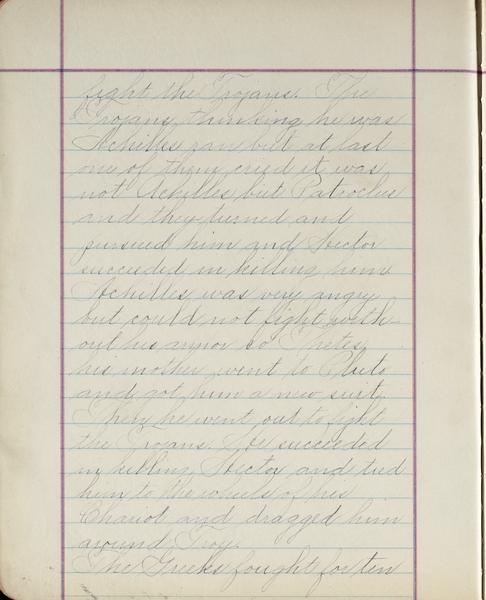 fight the Trojans. The
Trojans, thinking he was
Achilles ran but at last
one of them cried it was
not Achilles but Patroclus
and they turned and
pursued him and Hector
succeeded in killing him.
Achilles was very angry
but could not fight with-
out his armor so Thetes,
his mother, went to Pluto
and got him a new suit.
Then he went out to fight
the Trojans. He succeeded
in killing Hector and tied
him to the wheels of his
Chariot and dragged him
around Troy.
The Greeks fought for ten